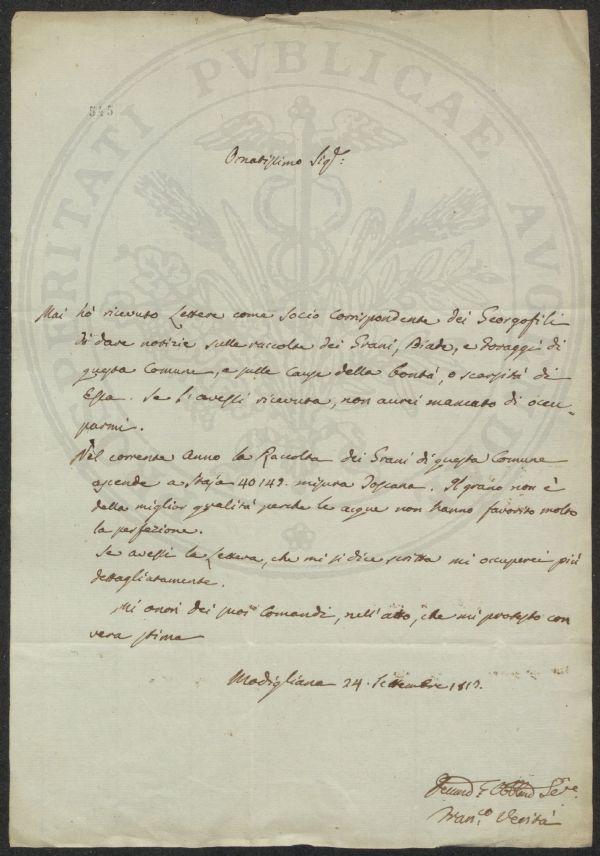 545
PROSPERITATI PVBLICAE AVGENDAE
Ornatissimo Sigr:
Mai hò ricevuto Lettere come Socio Corrispondente dei Georgofili
di dare notizie sulle raccolte dei Grani, Biade, e Foraggi di
questa Comune, e sulle Cause della bontà, o scarsità di
Essa. Se l'avessi ricevuta, non aurei mancato di occu-
parmi.
Nel corrente Anno la Raccolta dei Grani di questa Comune
ascende a Staja 40149. misura Toscana. Il grano non è
della miglior qualità perche le acque non hanno favorito molto
la perfezione.
Se avessi la Lettera, che mi si dice scritta mi occuperei più
dettagliatamente.
Mi onori dei suoi Comandi, nell'atto, che mi protesto con
vera stima
Modigliana 24. Settembre
Fran.co Verità